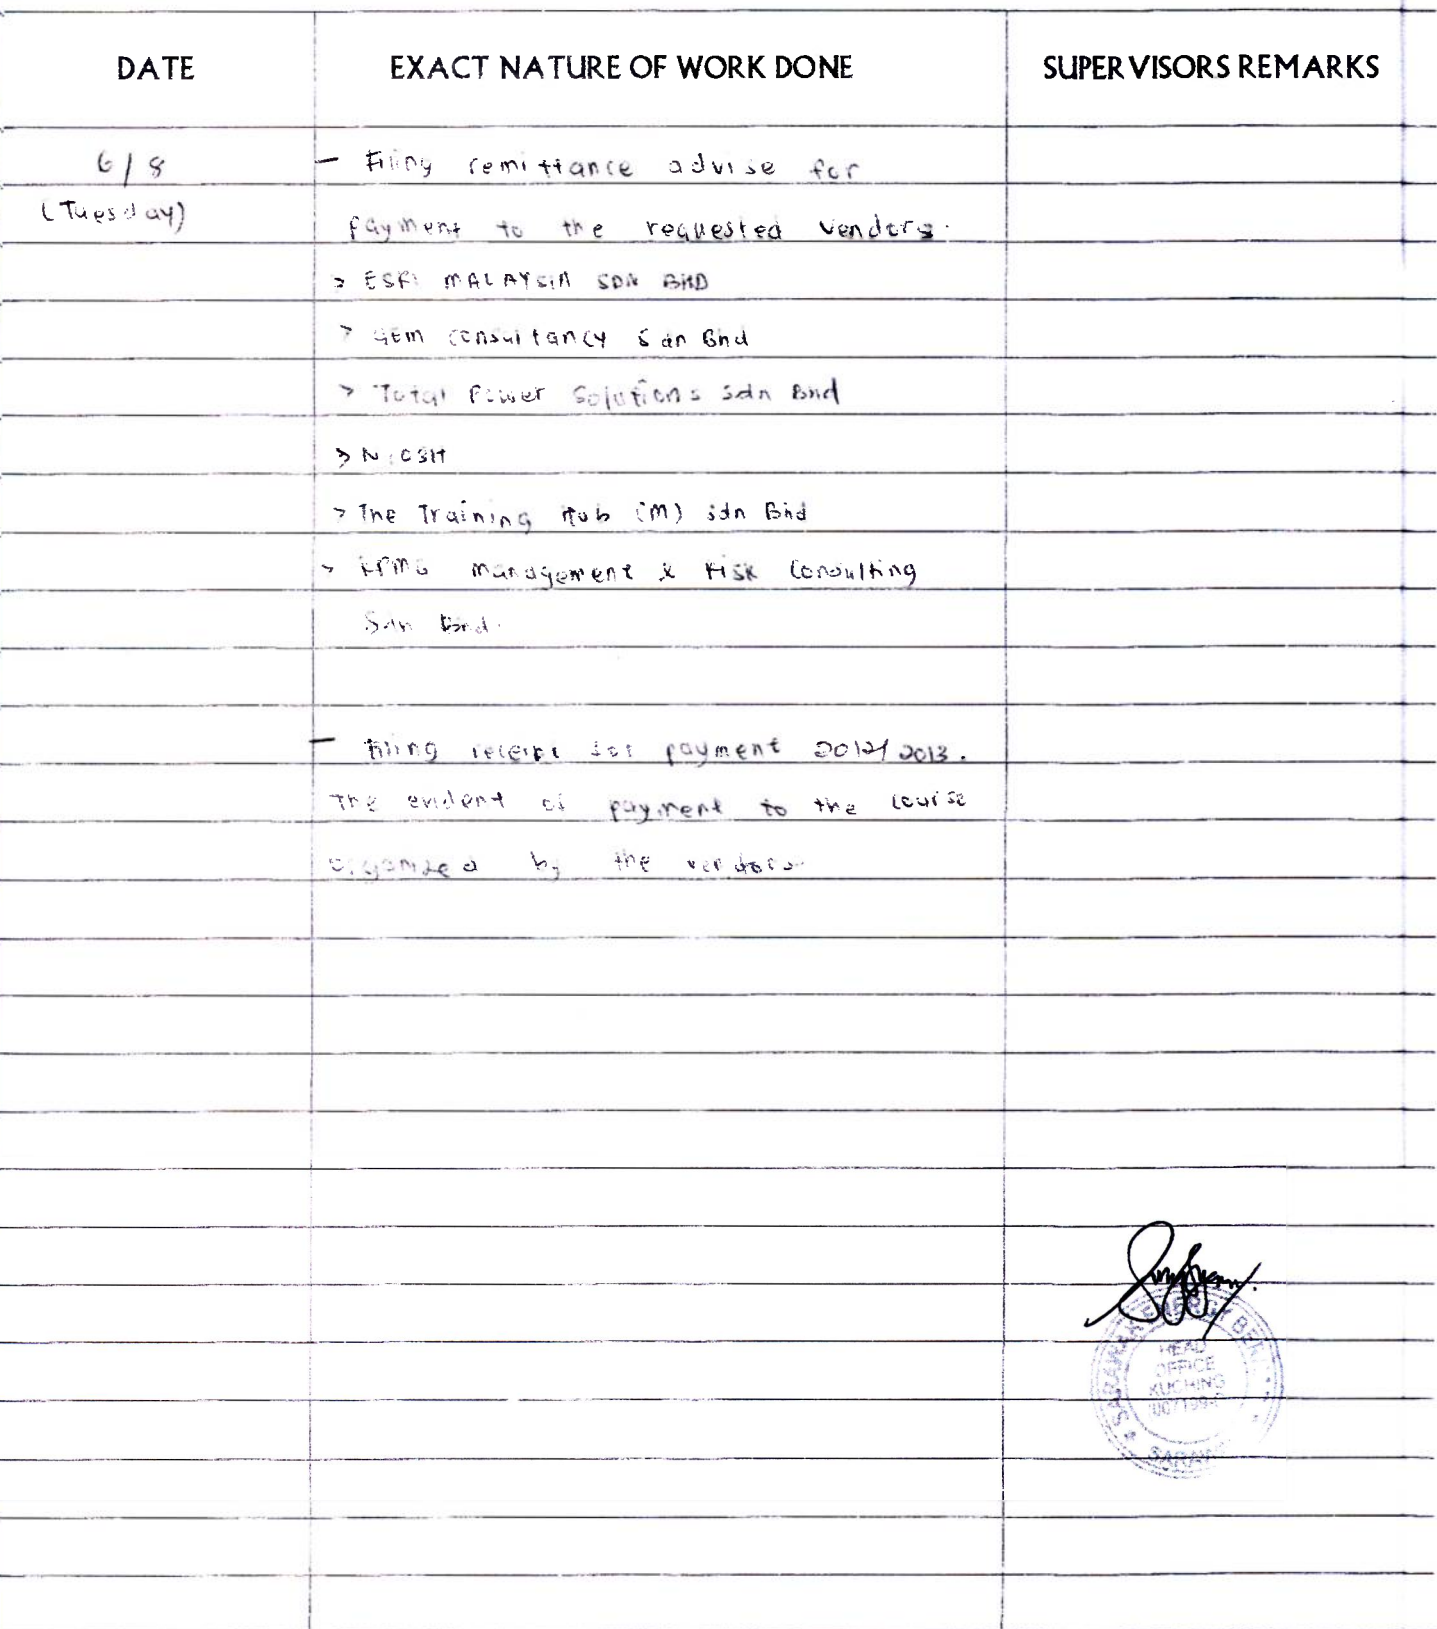 DATE EXACT NATURE OF WORK DONE SUPERVISORS REMARKS
6/8 - Filing remittance advise for
(Tuesday) payment to the requested vendors.
> ESRI MALAYSIA SDN BHD
> GEM consultancy Sdn Bhd
> Total Power Solutions Sdn Bhd
> NIOSH
> The Training Hub (M) Sdn Bhd
> KPMG Management & Risk Consulting
Sdn Bhd.
- Filing receipt for payment 2012/2013.
The evident of payment to the course
organized by the vendors.
SARAWAK ENERGY
HEAD
OFFICE
KUCHING